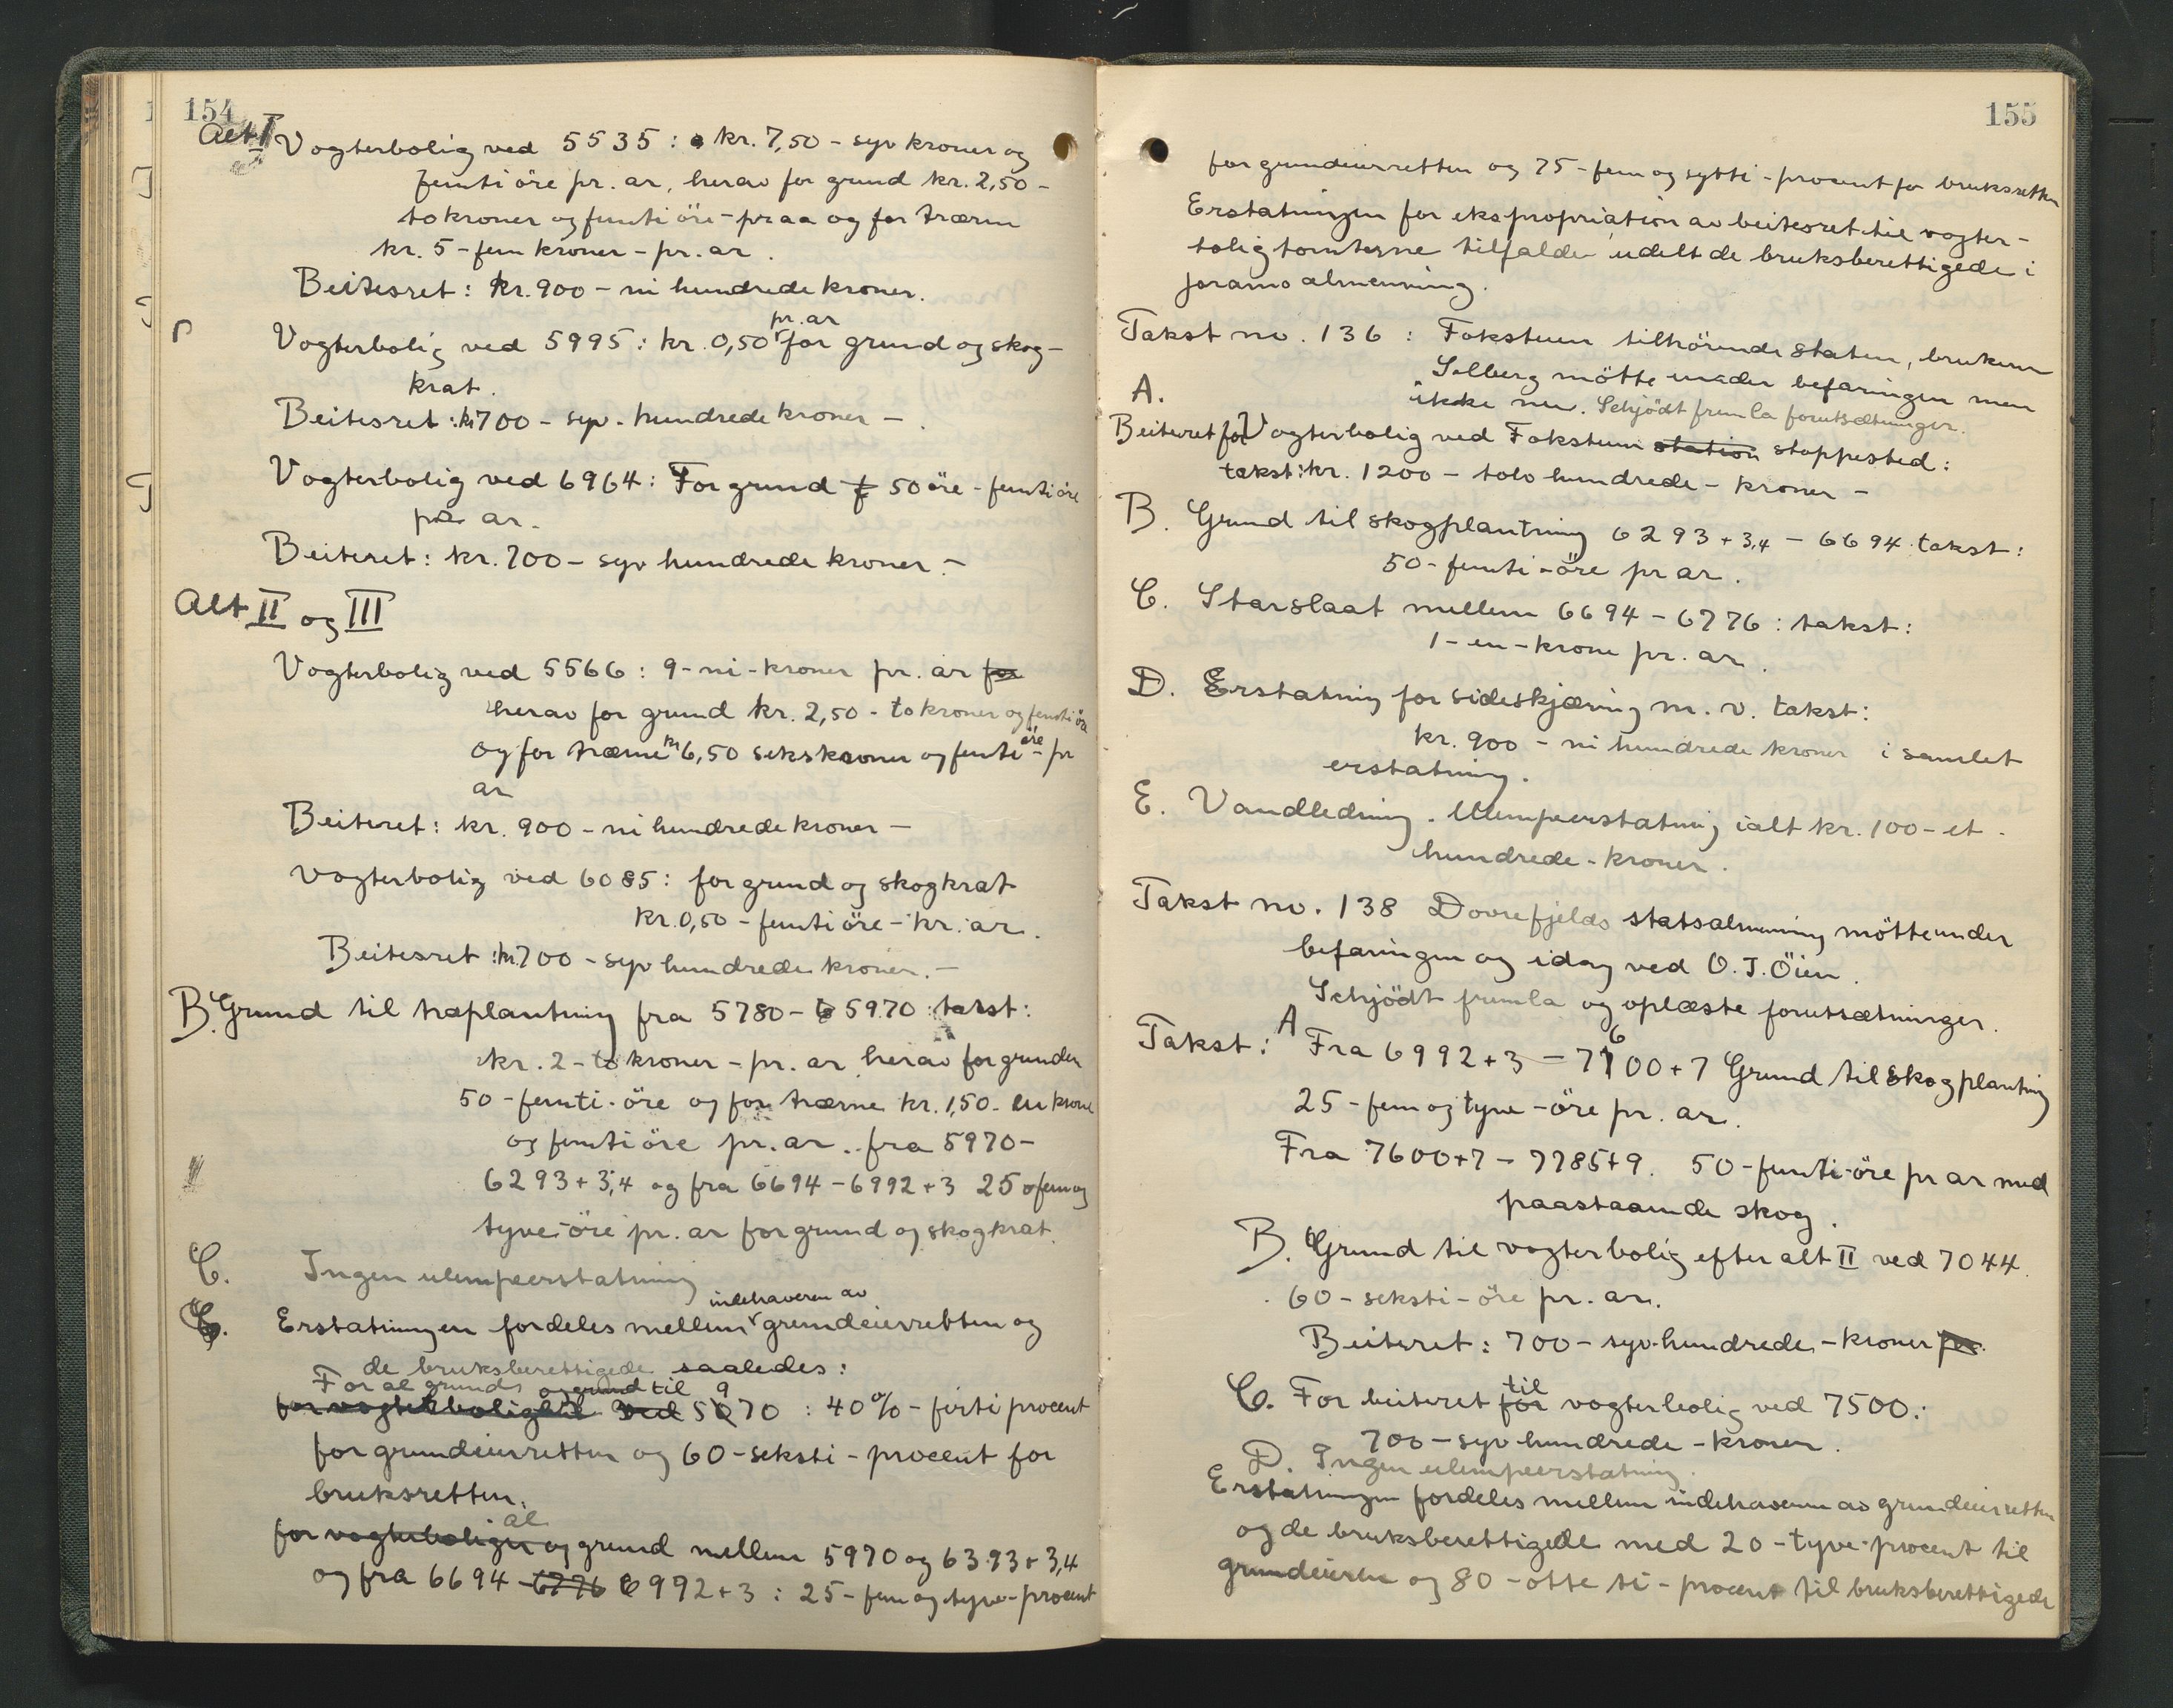 154
Alt I Vogterbolig ved 5535: kr. 7,50 - syv kroner og
femti öre pr. ar, herav for grund kr. 2,50 -
to kroner og femti öre - pr aa og for trærne
kr. 5 - fem kroner - pr. ar.
Beitesret: kr. 900 - ni hundrede kroner.
Vogterbolig ved 5995: kr. 0,50 pr. ar for grund og skog-
krat.
Beitesret: kr 700 - syv - hundrede kroner -
Vogterbolig ved 6964: For grund f 50 öre - femti öre
pr ar.
Beiteret: kr. 700 - syv hundrede kroner. -
Alt II og III
Vogterbolig ved 5566: 9 - ni - kroner pr. ar for
herav for grund kr. 2,50 - to kroner og femti öre
og for trærne kr 6,50 seks kroner og femti öre - pr
ar
Beiteret: kr. 900 - ni hundrede kroner -
Vogterbolig ved 6085: for grund og skogkrat
kr. 0,50 - femti öre - kr. ar.
Beitesret: kr. 700 - syv hundrede kroner. -
B. Grund til træplantning fra 5780 - 6 5970: takst:
kr. 2 - to kroner - pr. ar herav for grunden
50 - femti - öre og for trærne kr. 1,50 - en krone
og femti öre pr. ar. fra 5970 -
6293 + 3,4 og fra 6694 - 6992 + 3 25 - fem og
tyve - öre pr. ar for grund og skogkrat.
C. Ingen ulempeerstatning
Erstatningen fordeles mellem indehaveren av grundeierretten og
de bruksberettigede saaledes:
For al grund og grund til
for vogterbolig til ved 5970: 40% - förti procent
for grundeierretten og 60 - seksti - procent for
bruksretten.
for vogterboliger al og grund mellem 5970 og 6393 + 3,4
og fra 6694 - 6776 6992 + 3: 25 - fem og tyve - procent
155
for grundeierretten og 75 - fem og sytti - procent for bruksretten
Erstatningen for ekspropriation av beitesret til vogter-
bolig tomterne tilfalder udelt de bruksberettigede i
Joramo almenning.
Takst no. 136: Fokstuen tilhörende staten, brukeren
Solberg mötte under befaringen men
ikke nu. Schjödt fremla forutsætninger.
A.
Beiteret for Vogterbolig ved Fokstuen station stoppested:
takst: kr. 1200 - tolv hundrede - kroner -
B. Grund til skogplantning 6293 + 3,4 - 6694 takst:
50 - femti - öre pr ar.
C. Starslaat mellem 6694 - 6776: takst:
1 - en - krone pr. ar.
D. Erstatning for sideskjæring m. v. takst:
kr. 900 - ni hundrede kroner i samlet
erstatning.
E. Vandledning. Ulempeerstatning ialt kr. 100 - et -
hundrede - kroner.
Takst no. 138 Dovrefjelds statsalmenning mötte under
befaringen og idag ved O. J. Öien.
Schjödt fremla og oplæste forutsætninger.
Takst: A Fra 6992 + 3 - 7600 + 7 Grund til skogplantning
25 - fem og tyve - öre pr. ar.
Fra 7600 + 7 - 7785 + 9. 50 - femti - öre pr ar med
paastaaende skog.
B. Grund til vogterbolig efter alt II ved 7044.
60 - seksti - öre pr. ar.
Beiteret: 700 - syv - hundrede - kroner pr.
C. For beiteret for til vogterbolig ved 7500:
700 - syv hundrede - kroner.
D. Ingen ulempeerstatning.
Erstatningen fordeles mellem indehaveren av grundeierretten
og de bruksberettigede med 20 - tyve - procent til
grundeieren og 80 - otte ti - procent til bruksberettigede